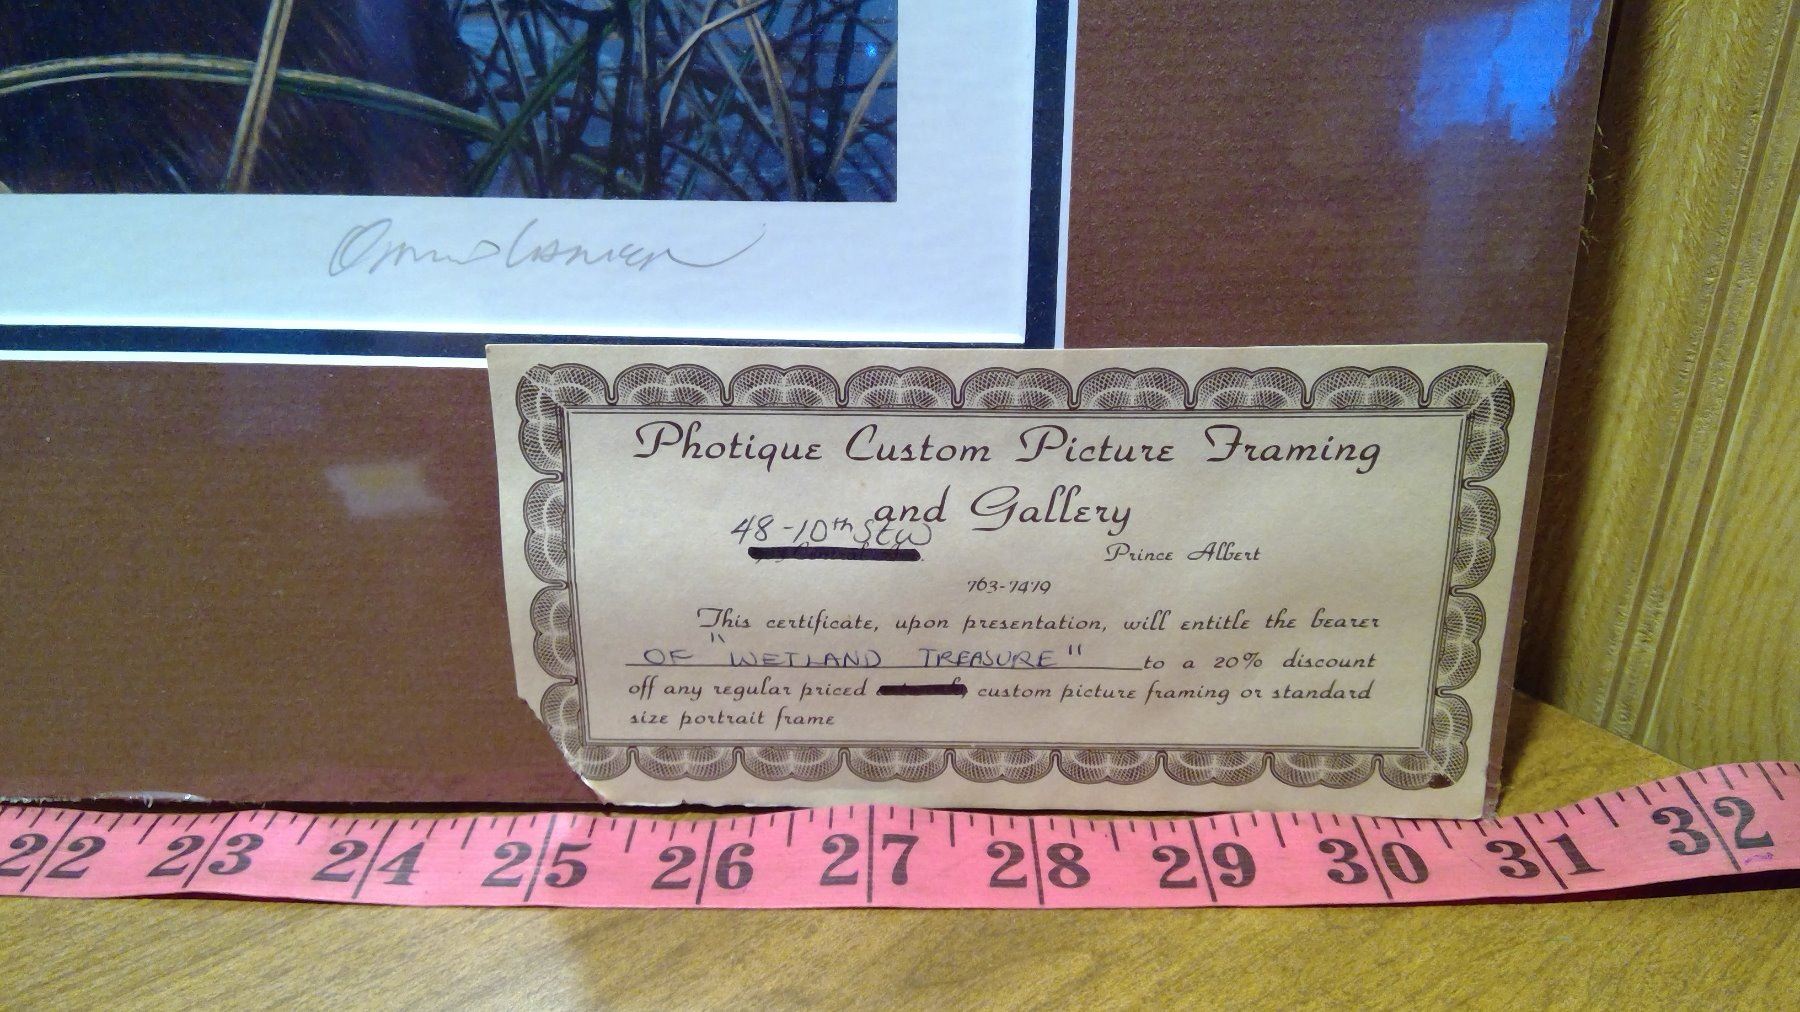 Photique Custom Picture Framing
and Gallery
48-10th St W
Prince Albert
763-7479
This certificate, upon presentation, will entitle the bearer
OF "WETLAND TREASURE" to a 20% discount
off any regular priced custom picture framing or standard
size portrait frame
22 23 24 25 26 27 28 29 30 31 32